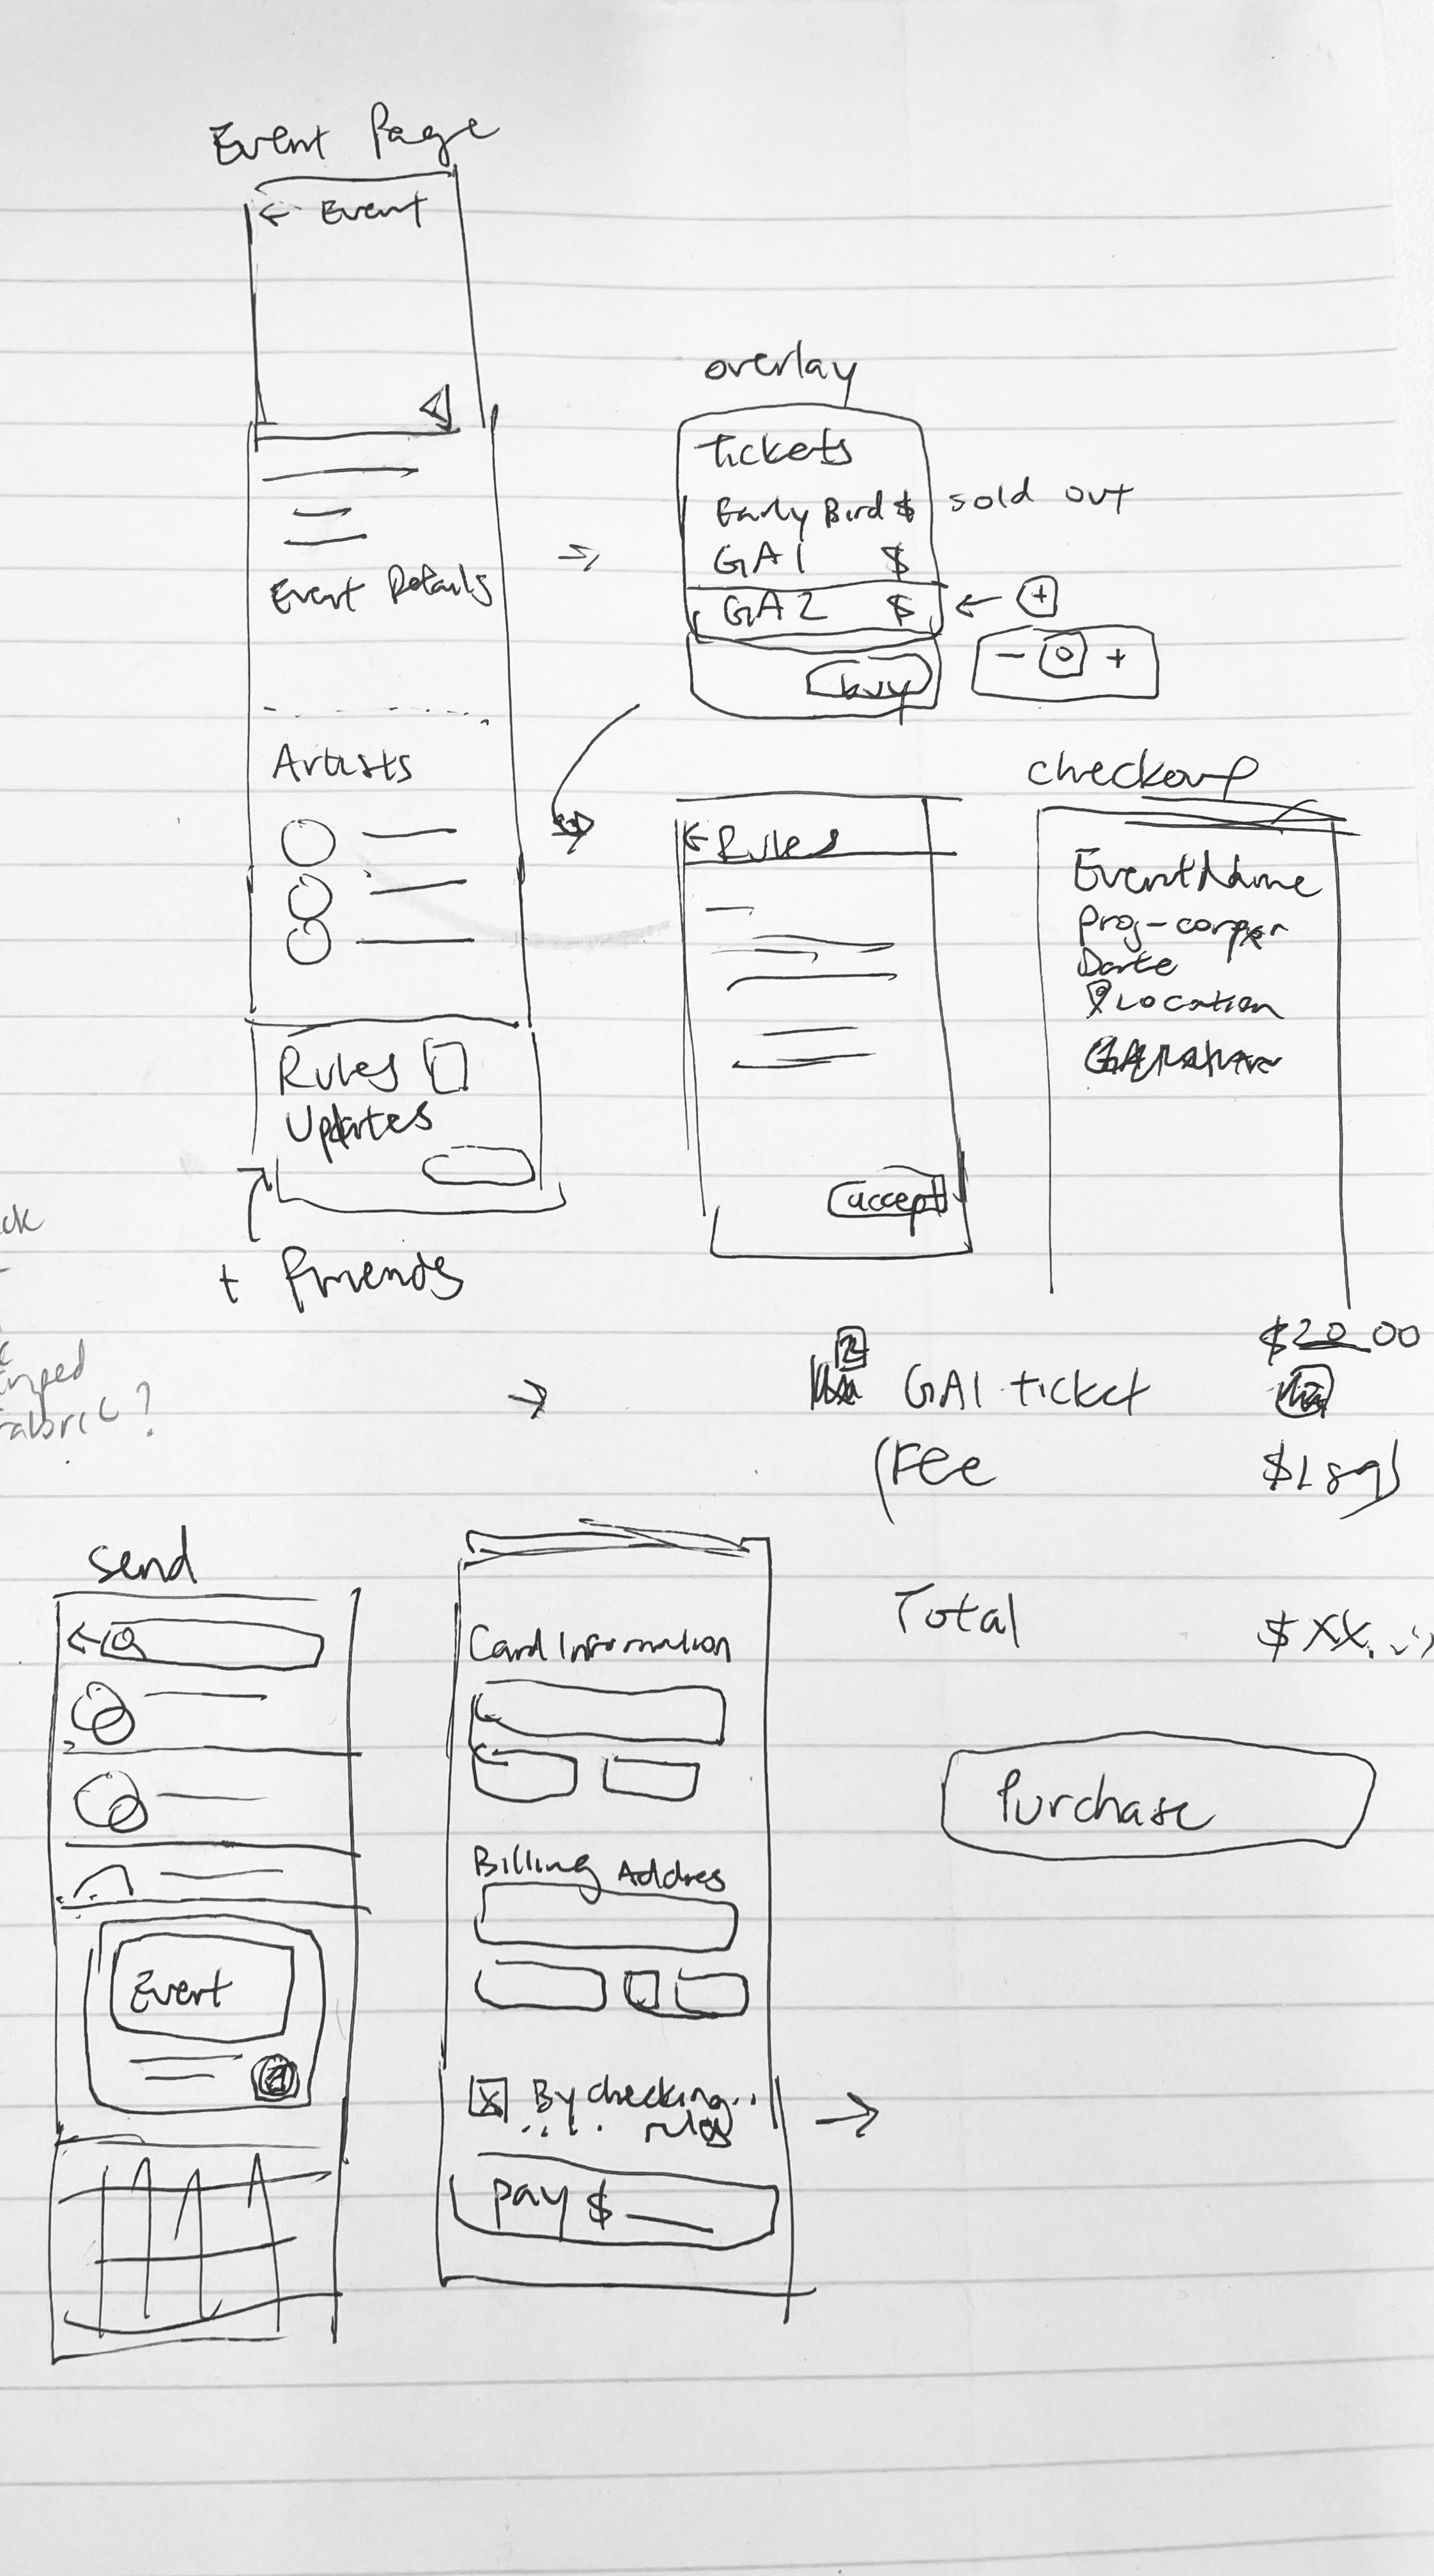 Event Page
← Event
Event Details
Artists
Rules
Updates
+ friends
overlay
Tickets
Early Bird $ sold out
GA1 $
GA2 $ ← +
- 0 +
buy
← Rules
accept
checkout
Event Name
Date
Location
$20.00
2 GA1 ticket
(Fee
Total $XX.
Purchase
send
Event
Card Information
Billing Addres
By checking..
.... rules
pay $
ck
fabric?